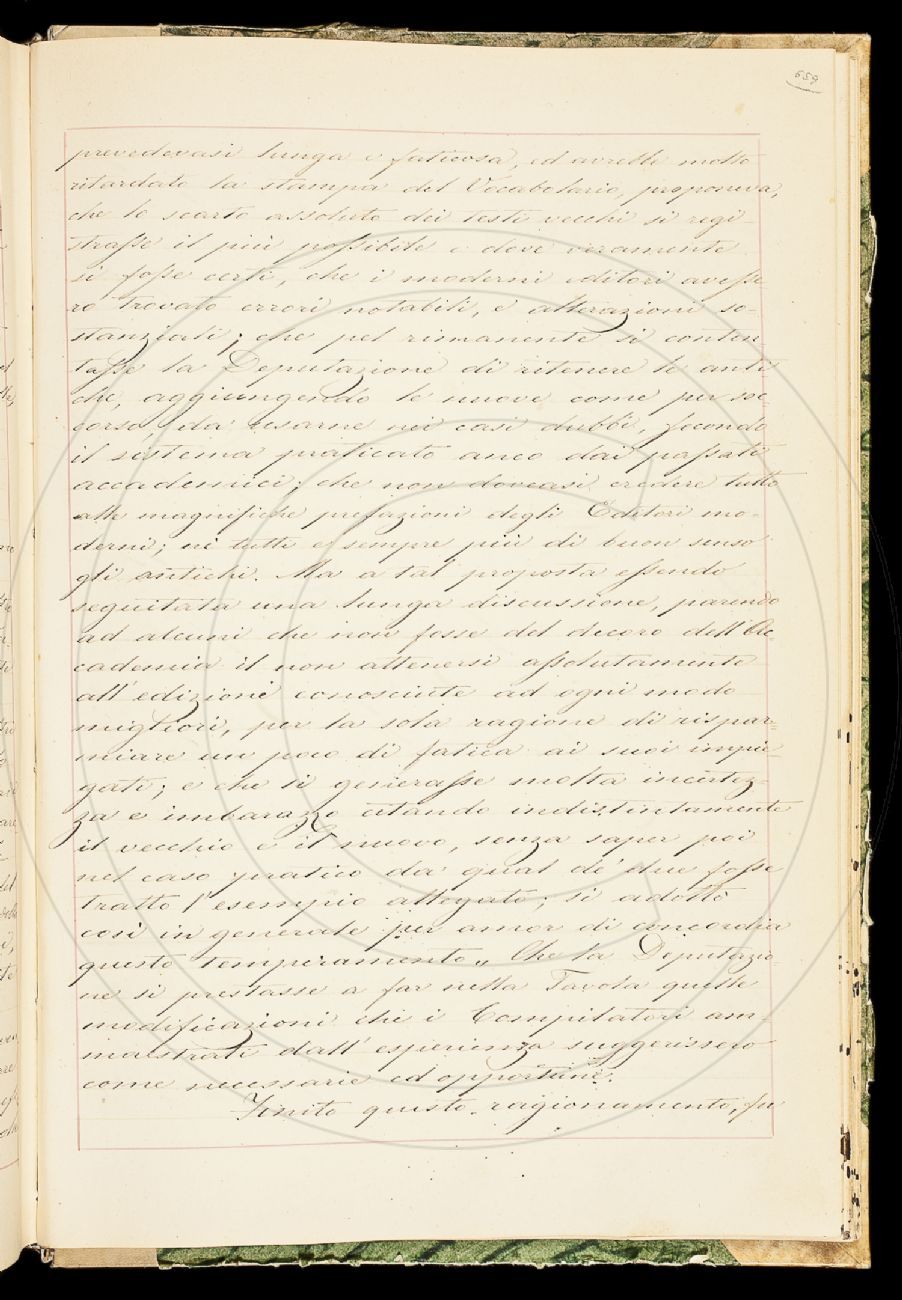 659
prevedevasi lunga e faticosa, ed avrebbe molto
ritardato la stampa del Vocabolario, proponeva,
che lo scarto assoluto dei testi vecchi si regi-
strasse il più possibile e dove veramente
si fosse certi, che i moderni editori avesse
ro trovato errori notabili, e alterazioni so-
stanziali; che pel rimanente si conten-
tasse la Deputazione di ritenere le anti
che, aggiungendo le nuove come per soc
corso, da usarne nei casi dubbi, secondo
il sistema praticato anco dai passati
accademici; che non doveasi credere tutto
alle magnifiche prefazioni degli Editori mo-
derni; nè tutti e sempre più di buon senso
gli antichi. Ma a tal proposta essendo
seguitata una lunga discussione, parendo
ad alcuni che non fosse del decoro dell'Ac-
cademia il non attenersi assolutamente
all'edizioni conosciute ad ogni modo
migliori, per la sola ragione di rispar-
miare un poco di fatica ai suoi impie-
gati; e che si generasse molta incertez-
za e imbarazzo citando indistintamente
il vecchio e il nuovo, senza saper poi
nel caso pratico da qual de' due fosse
tratto l'esempio allegato; si adottò
così in generale per amor di concordia
questo temperamento „ Che la Deputazio
ne si prestasse a far nella Tavola quelle
modificazioni che i Compilatori am-
maestrati dall'esperienza suggerissero
come necessarie ed opportune".
Finito questo ragionamento, fu